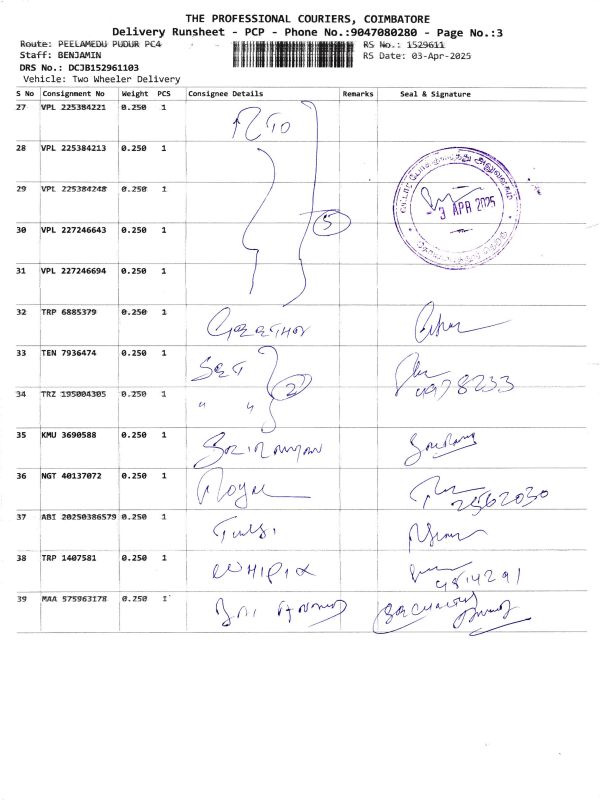 THE PROFESSIONAL COURIERS, COIMBATORE
Delivery Runsheet - PCP - Phone No.:9047080280 - Page No.:3
Route: PEELAMEDU PUDUR PC4 RS No.: 1529611
Staff: BENJAMIN RS Date: 03-Apr-2025
DRS No.: DCJB152961103
Vehicle: Two Wheeler Delivery
S No Consignment No Weight PCS Consignee Details Remarks Seal & Signature
27 VPL 225384221 0.250 1 RTO
28 VPL 225384213 0.250 1
29 VPL 225384248 0.250 1
3 APR 2025
5
30 VPL 227246643 0.250 1
31 VPL 227246694 0.250 1
32 TRP 6885379 0.250 1
33 TEN 7936474 0.250 1
2 4978233
34 TRZ 195004305 0.250 1 " "
35 KMU 3690588 0.250 1
36 NGT 40137072 0.250 1 Royal
2562030
37 ABI 20250386579 0.250 1 Tulsi
38 TRP 1407581 0.250 1
4814291
39 MAA 575963178 0.250 1